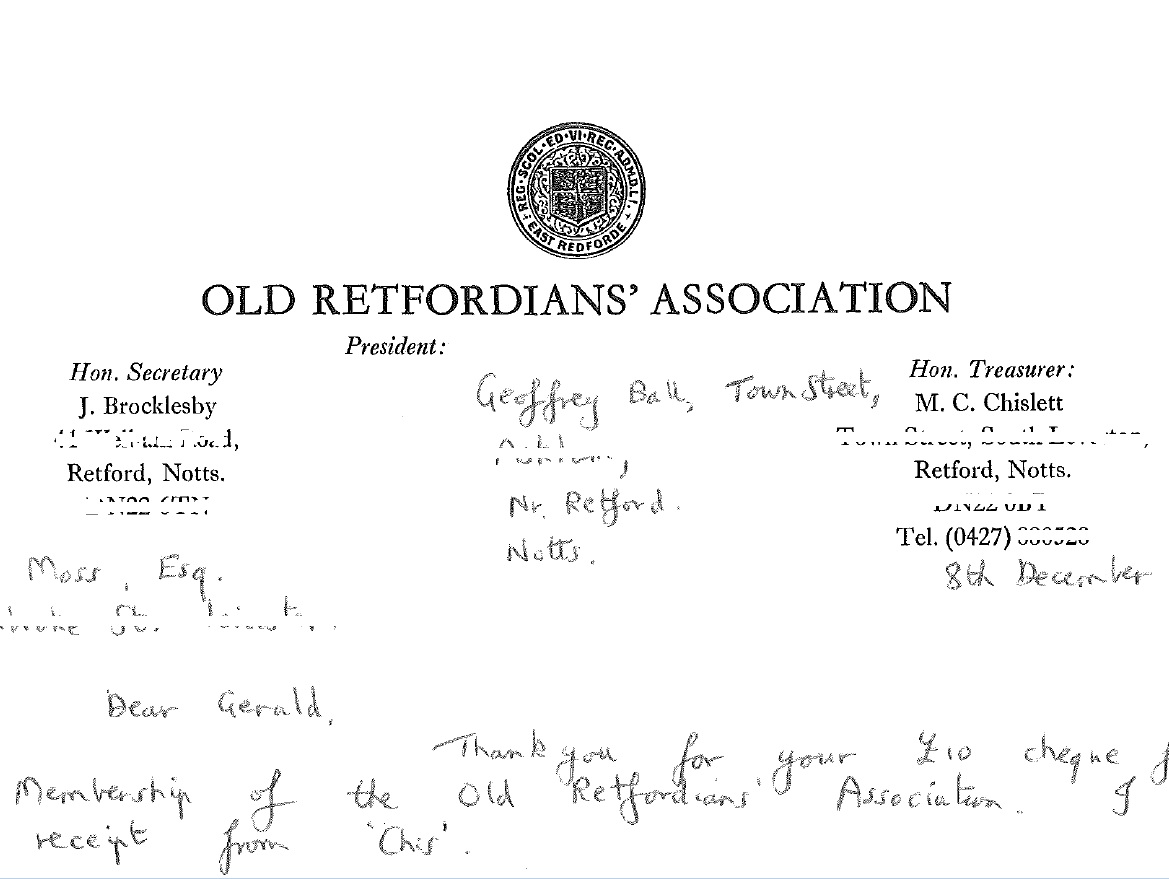 REG·SCOL·ED·VI·REG·A.D.M.D.L.I.
EAST REDFORDE
OLD RETFORDIANS' ASSOCIATION
President:
Geoffrey Ball, Town Street,
Nr. Retford.
Notts.
Hon. Secretary
J. Brocklesby
Retford, Notts.
Hon. Treasurer:
M. C. Chislett
Retford, Notts.
Tel. (0427)
8th December
Moss, Esq.
Dear Gerald,
Thank you for your £10 cheque
Membership of the Old Retfordians' Association. I
receipt from 'Chis'.